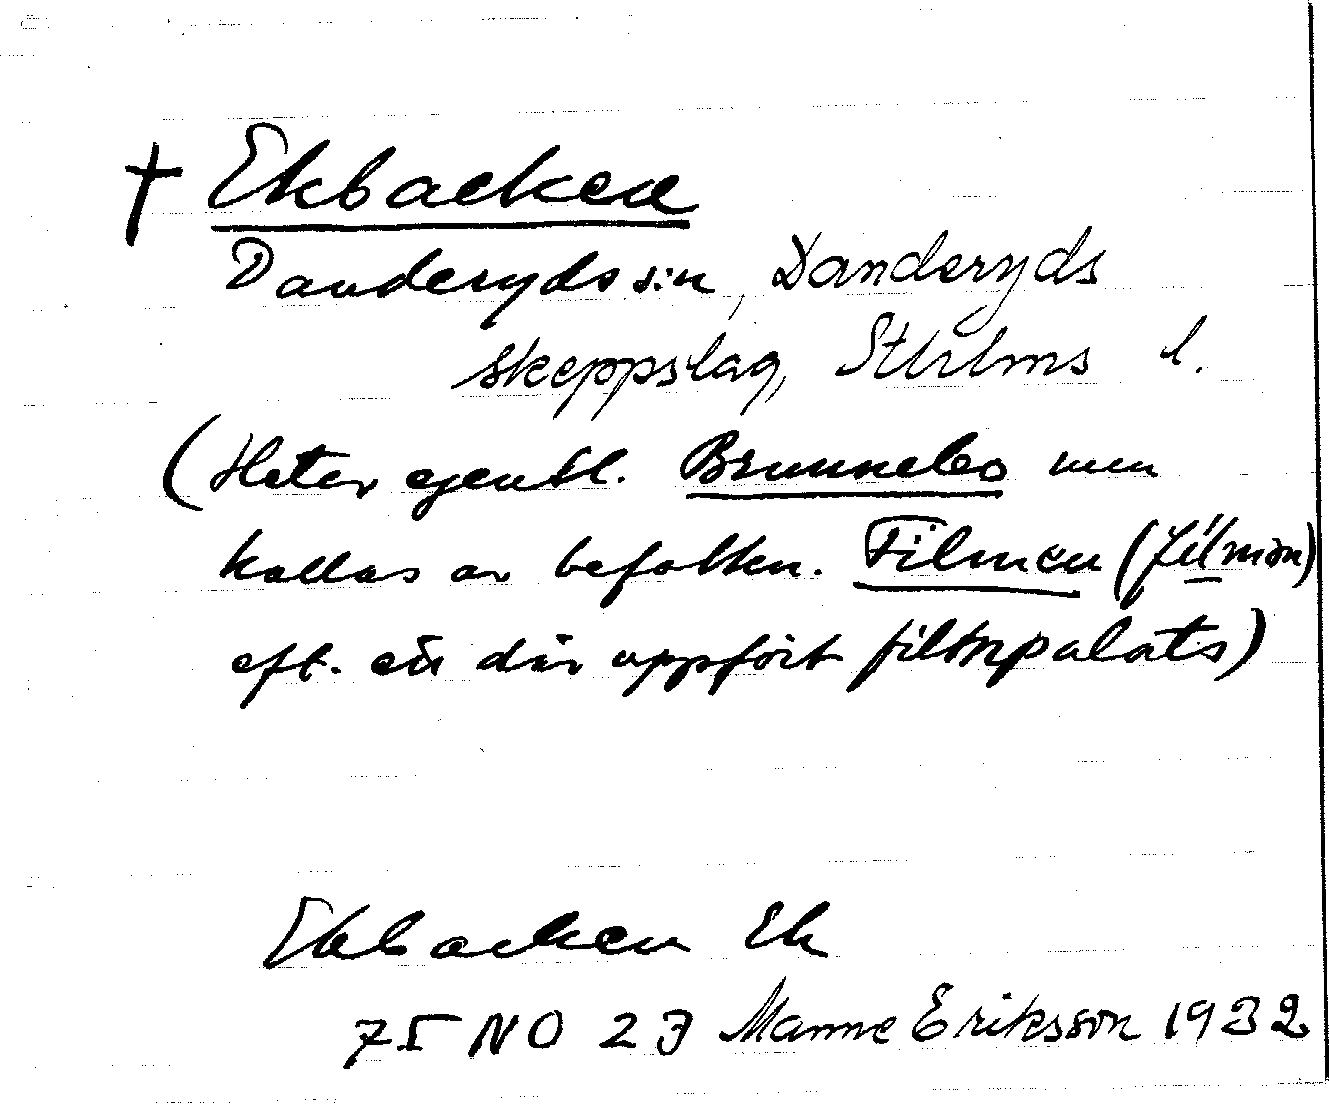 † Ekbacken
Danderyds sn, Danderyds
skeppslag, Sthlms l.
(Heter egentl. Brunnebo men
kallas av befolkn. Filmen (fílmən)
eft. ett där uppfört filmpalats)
Ekbacken Ek
75 NO 23 Manne Eriksson 1932